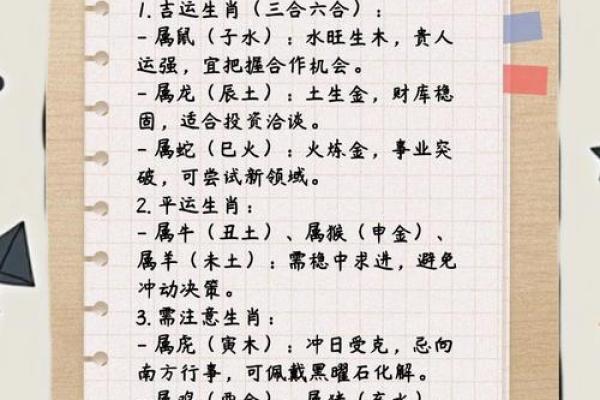 1. 吉运生肖（三合六合）：
- 属鼠（子水）：水旺生木，贵人
运强，宜把握合作机会。
- 属龙（辰土）：土生金，财库稳
固，适合投资洽谈。
- 属蛇（巳火）：火炼金，事业突
破，可尝试新领域。
2. 平运生肖：
- 属牛（丑土）、属猴（申金）、
属羊（未土）：需稳中求进，避免
冲动决策。
3. 需注意生肖：
- 属虎（寅木）：冲日受克，忌向
南方行事，可佩戴黑曜石化解。
- 属鸡（酉金）、属猪（亥水）